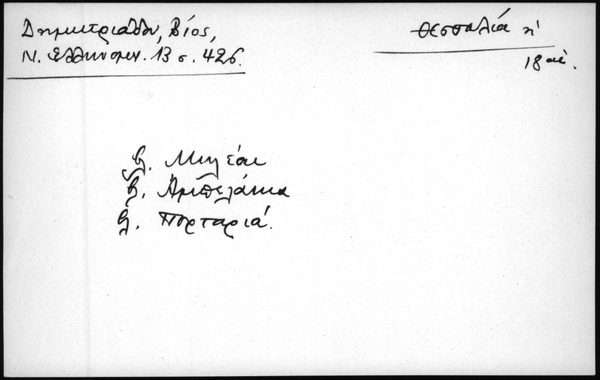 Δημητριάδου, Βίος,
Ν. Ελληνομν. 13 σ. 426.
Θεσσαλία
18 αἰ.
βλ. Μηλέαι
βλ. Ἀμπελάκια
βλ. Πορταριά.